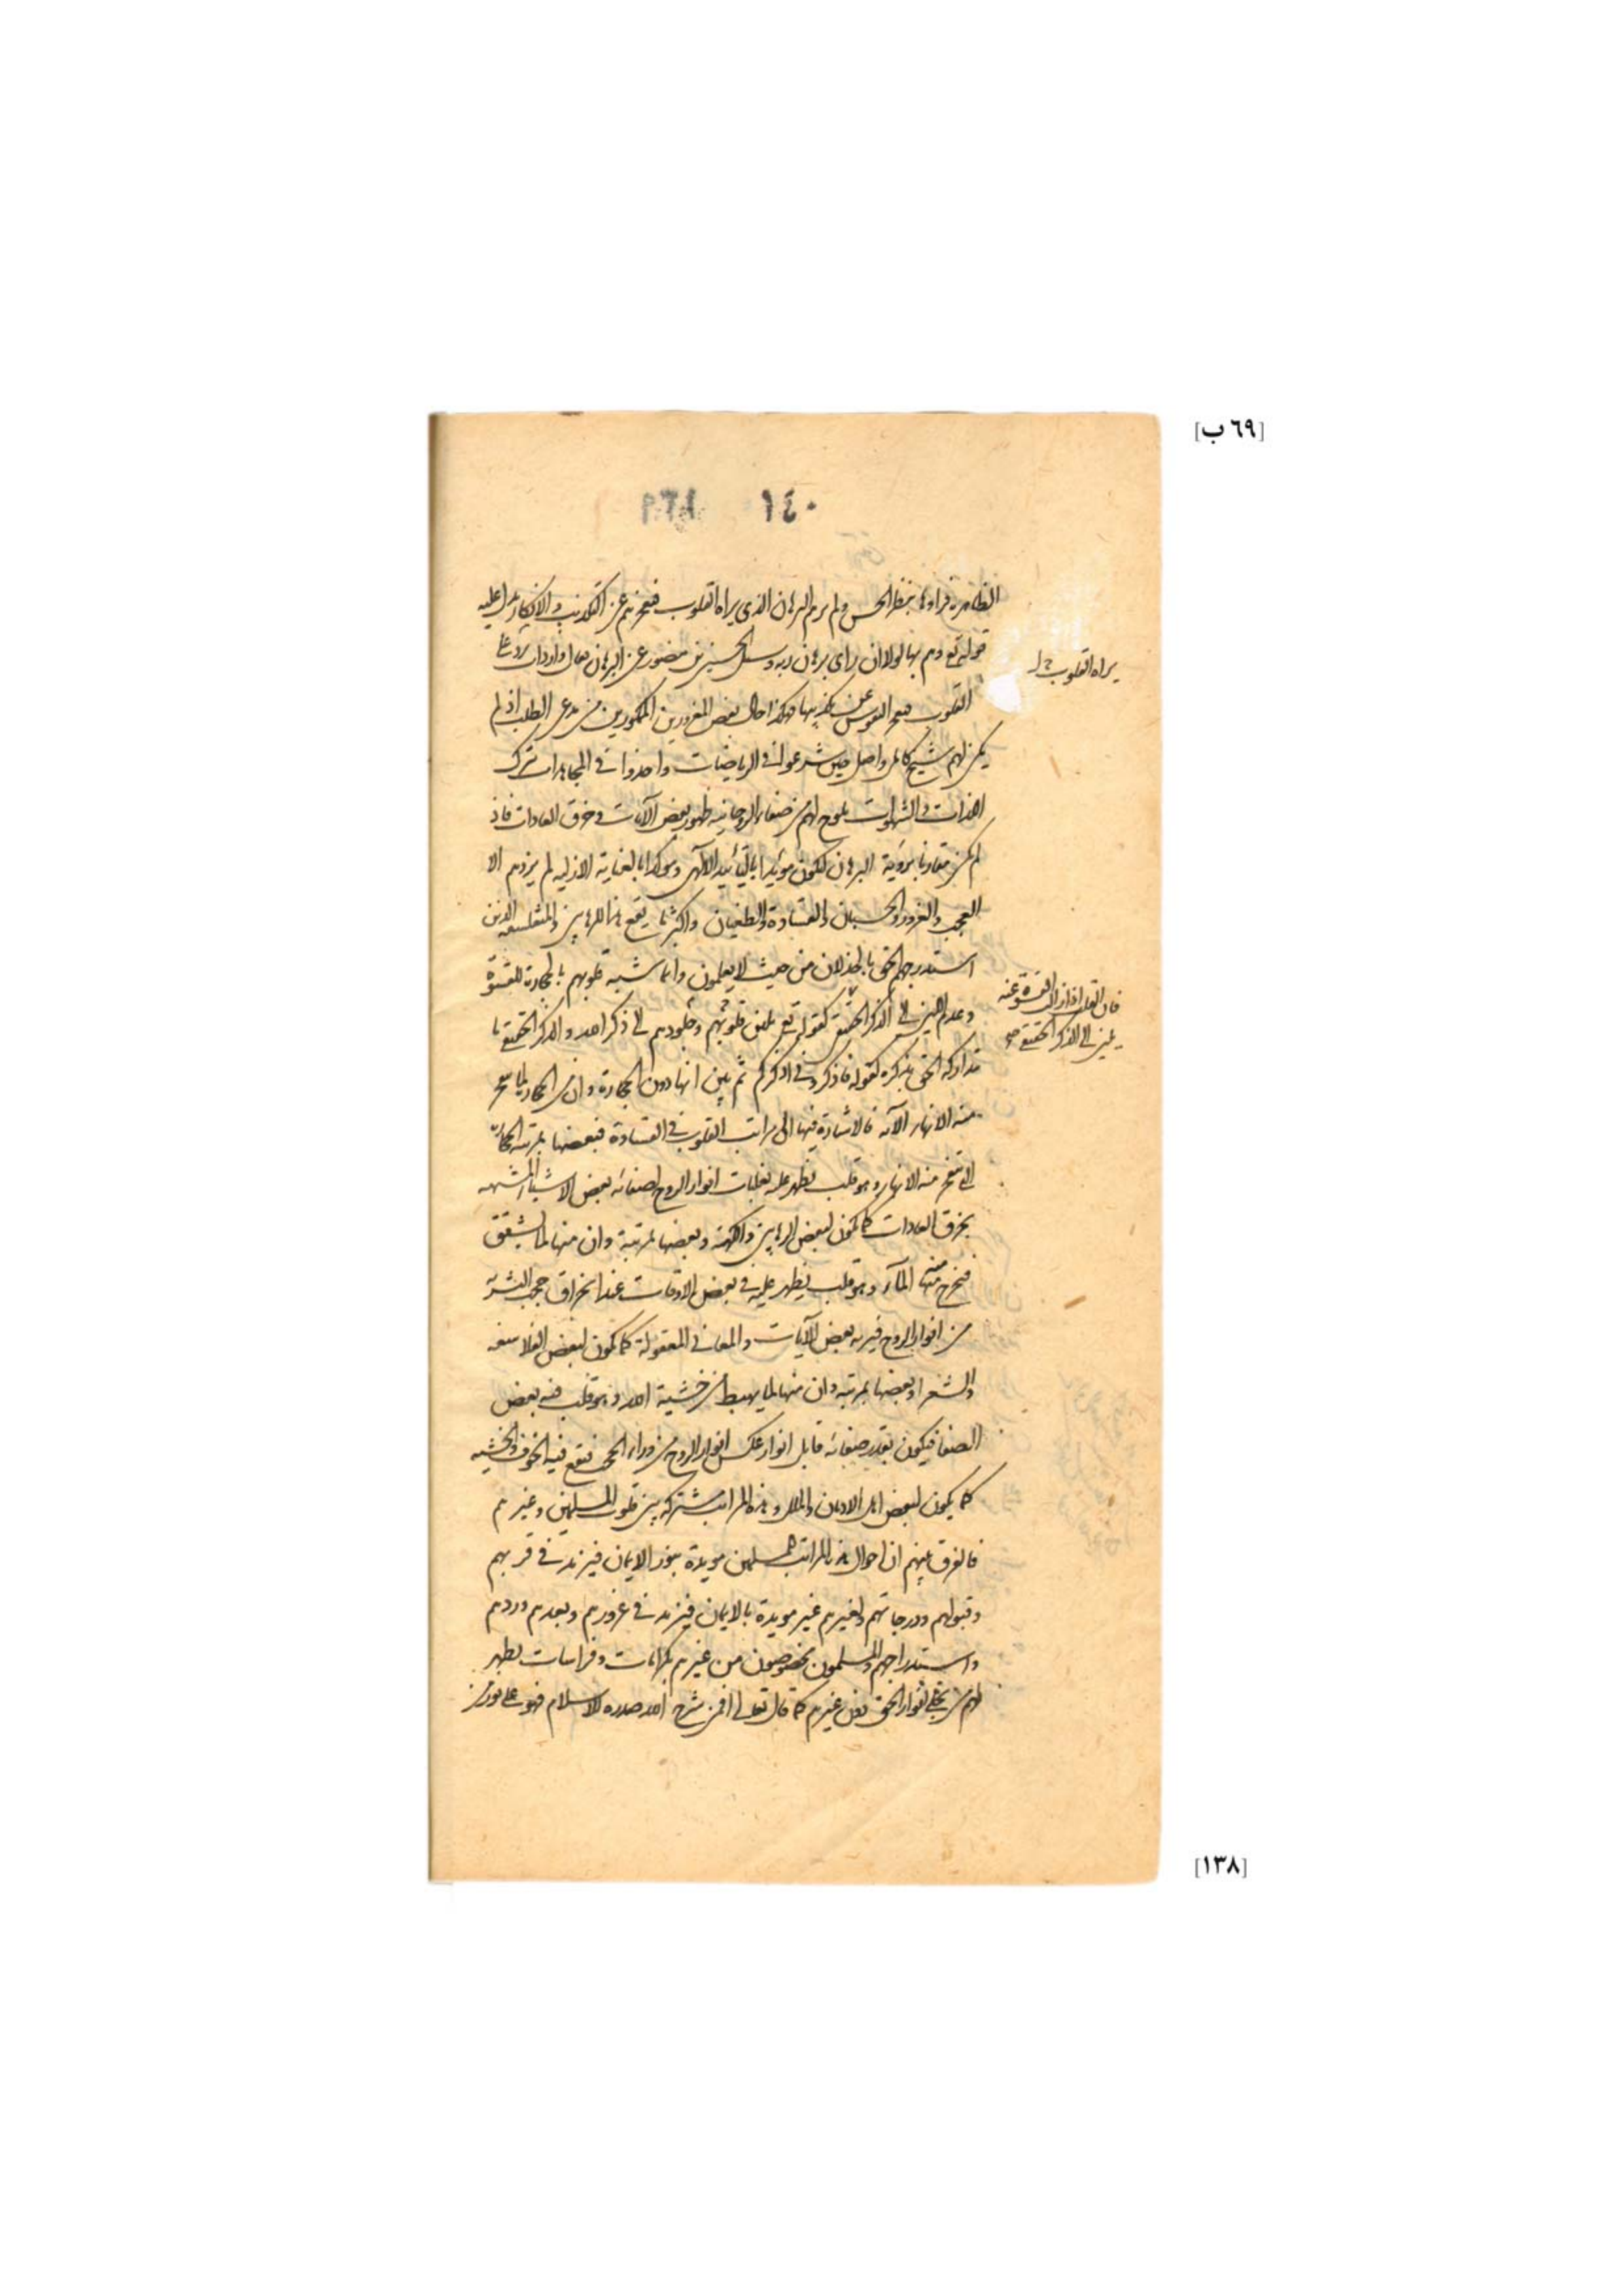 [٦٩ ب]
الظاهرة فراوها بنظر الحس ولم يرهم البرهان الذي يراه القلوب فيحجزهم عن التكذيب والانكار يدل عليه
قوله تع وهم بها لولا ان راى برهان ربه وسئل الحسين بن منصور عن البرهان فقال واردات ترد على
القلوب فتعجز النفوس عن تكذيبها فهكذا حال بعض المغرورين الممكورين من مدعى الطلب اذ لم
يكن لهم شيخ كامل واصل حين شرعوا في الرياضات واخذوا في المجاهدات بترك
اللذات والشهوات يلوح لهم من صفاء الروحانية ظهور بعض الآيات وخرق العادات فاذ
لم يكن مقارنا برؤية البرهان ليكون مؤيدا بالتأييد الالهى وموكدا بالعناية الازلية لم يزدهم الا
العجب والغرور والحسبان والقساوة والطغيان واكثر ما يقع هذا للرهابين والمتفلسفه الذين
استدرجهم الحق بالخذلان من حيث لا يعلمون وانما شبه قلوبهم بالحجارة للقسوة
وعدم اللين الى الذكر الحقيقى كقوله تع تلين قلوبهم وجلودهم الى ذكر الله والذكر الحقيقي ما
تداركه الحق بذكره كقوله فاذكروني اذكركم ثم بين انها دون الحجارة وان من الحجارة لما يتفجر
منه الانهار الآية فالاشارة فيها الى مراتب القلوب في القساوة فبعضها بمرتبة الحجارة
التي يتفجر منه الانهار وهو قلب يظهر عليه بغلبات انوار الروح لصفائه بعض الاشياء المشبهه
بخرق العادات كما يكون لبعض الرهابين والكهنة وبعضها بمرتبة وان منها لما يشقق
فيخرج منه الماء وهو قلب يظهر عليه في بعض الاوقات عند انخراق حجب البشرية
من انوار الروح فيريه بعض الآيات والمعاني المعقولة كما يكون لبعض الفلاسفه
والشعراء وبعضها بمرتبة وان منها لما يهبط من خشية الله وهو قلب فيه بعض
الصفا فيكون بقدر صفائه قابل انوار عكس انوار الروح من وراء الحجب فيقع فيه الخوف والخشيه
كما يكون لبعض اهل الاديان والملل وهذه المراتب مشتركة بين قلوب المسلمين وغيرهم
فالفرق بينهم ان احوال هذه المراتب للمسلمين مويدة بنور الايمان فيزيد في قربهم
وقبولهم ودرجاتهم ولغيرهم غير مويدة بالايمان فيزيد في غرورهم وبعدهم وردهم
واستدراجهم والمسلمون مخصوصون من غيرهم بكرامات وفراسات يظهر
لهم من تجلى انوار الحق دون غيرهم كما قال تعالى افمن شرح الله صدره للاسلام فهو على نور من
يراه القلوب
فان القلب اذا زال القسوة عنه
يلين الى الذكر الحقيقي صح
[١٣٨]